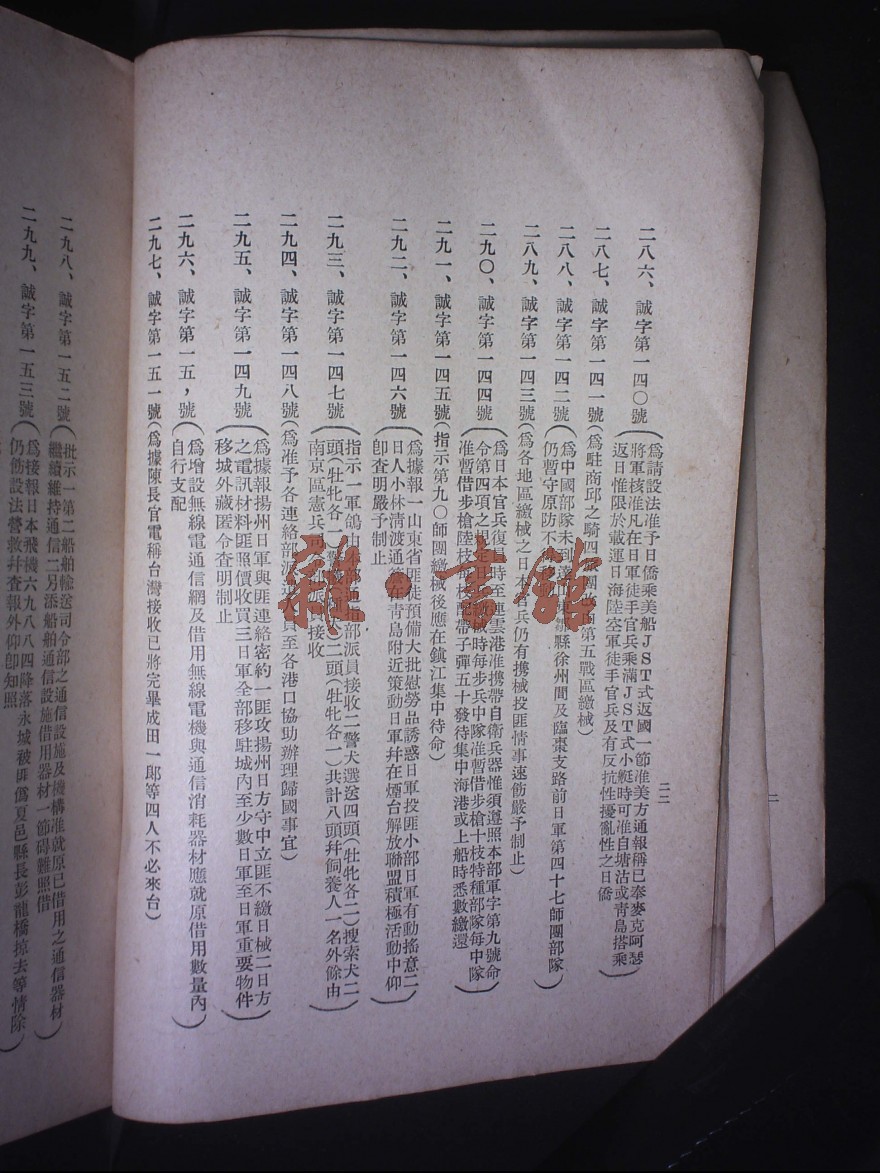 二八六、誠字第一四〇號（為請設法准予日僑乘美船JST式返國一節准美方通報稱已奉麥克阿瑟
將軍核准凡在日軍徒手官兵乘滿JST式小艇時可准自塘沽或青島搭乘
返日惟限於載運日海陸空軍徒手官兵及有反抗性擾亂性之日僑）
二八七、誠字第一四一號（為駐商邱之騎四 第五戰區繳械）
二八八、誠字第一四二號（為中國部隊未到 縣徐州間及臨棗支路前日軍第四十七師團部隊
仍暫守原防不 ）
二八九、誠字第一四三號（為各地區繳械之日本官兵仍有携械投匪情事速飭嚴予制止）
二九〇、誠字第一四四號（為日本官兵復員時至連雲港准携帶自衛兵器惟須遵照本部軍字第九號命
令第四項之規定 繳械時每步兵中隊准暫借步槍十枝特種部隊每中隊
准暫借步槍陸枝 配帶子彈五十發待集中海港或上船時悉數繳還）
二九一、誠字第一四五號（指示第九〇師團繳械後應在鎮江集中待命）
二九二、誠字第一四六號（為據報一山東省匪徒預備大批慰勞品誘惑日軍投匪小部日軍有動搖意二
日人小林清渡通 在青島附近策動日軍幷在烟台解放聯盟積極活動中仰
卽查明嚴予制止）
二九三、誠字第一四七號（指示一軍鴿由本部 指部派員接收二警犬選送四頭（牡牝各二）搜索犬二
頭（牡牝各一） 犬二頭（牡牝各一）共計八頭幷飼養人一名外餘由
南京區憲兵司 派員接收）
二九四、誠字第一四八號（為准予各連絡部派 員至各港口協助辦理歸國事宜）
二九五、誠字第一四九號（為據報揚州日軍與匪連絡密約一匪攻揚州日方守中立匪不繳日械二日方
之電訊材料匪照價收買三日軍全部移駐城內至少數日軍至日軍重要物件
移城外藏匿令查明制止）
二九六、誠字第一五，號（為增設無線電通信網及借用無線電機與通信消耗器材應就原借用數量內
自行支配）
二九七、誠字第一五一號（為據陳長官電稱台灣接收已將完畢成田一郎等四人不必來台）
二二
二九八、誠字第一五二號（批示一第二船舶輸送司令部之通信設施及機構准就原已借用之通信器材
繼續維持通信二另添船舶通信設施借用器材一節碍難照借）
二九九、誠字第一五三號（為接報日本飛機六九八八四降落永城被匪僞夏邑縣長彭龍橋掠去等情除
仍飭設法營救幷查報外仰卽知照
二
雜·書館